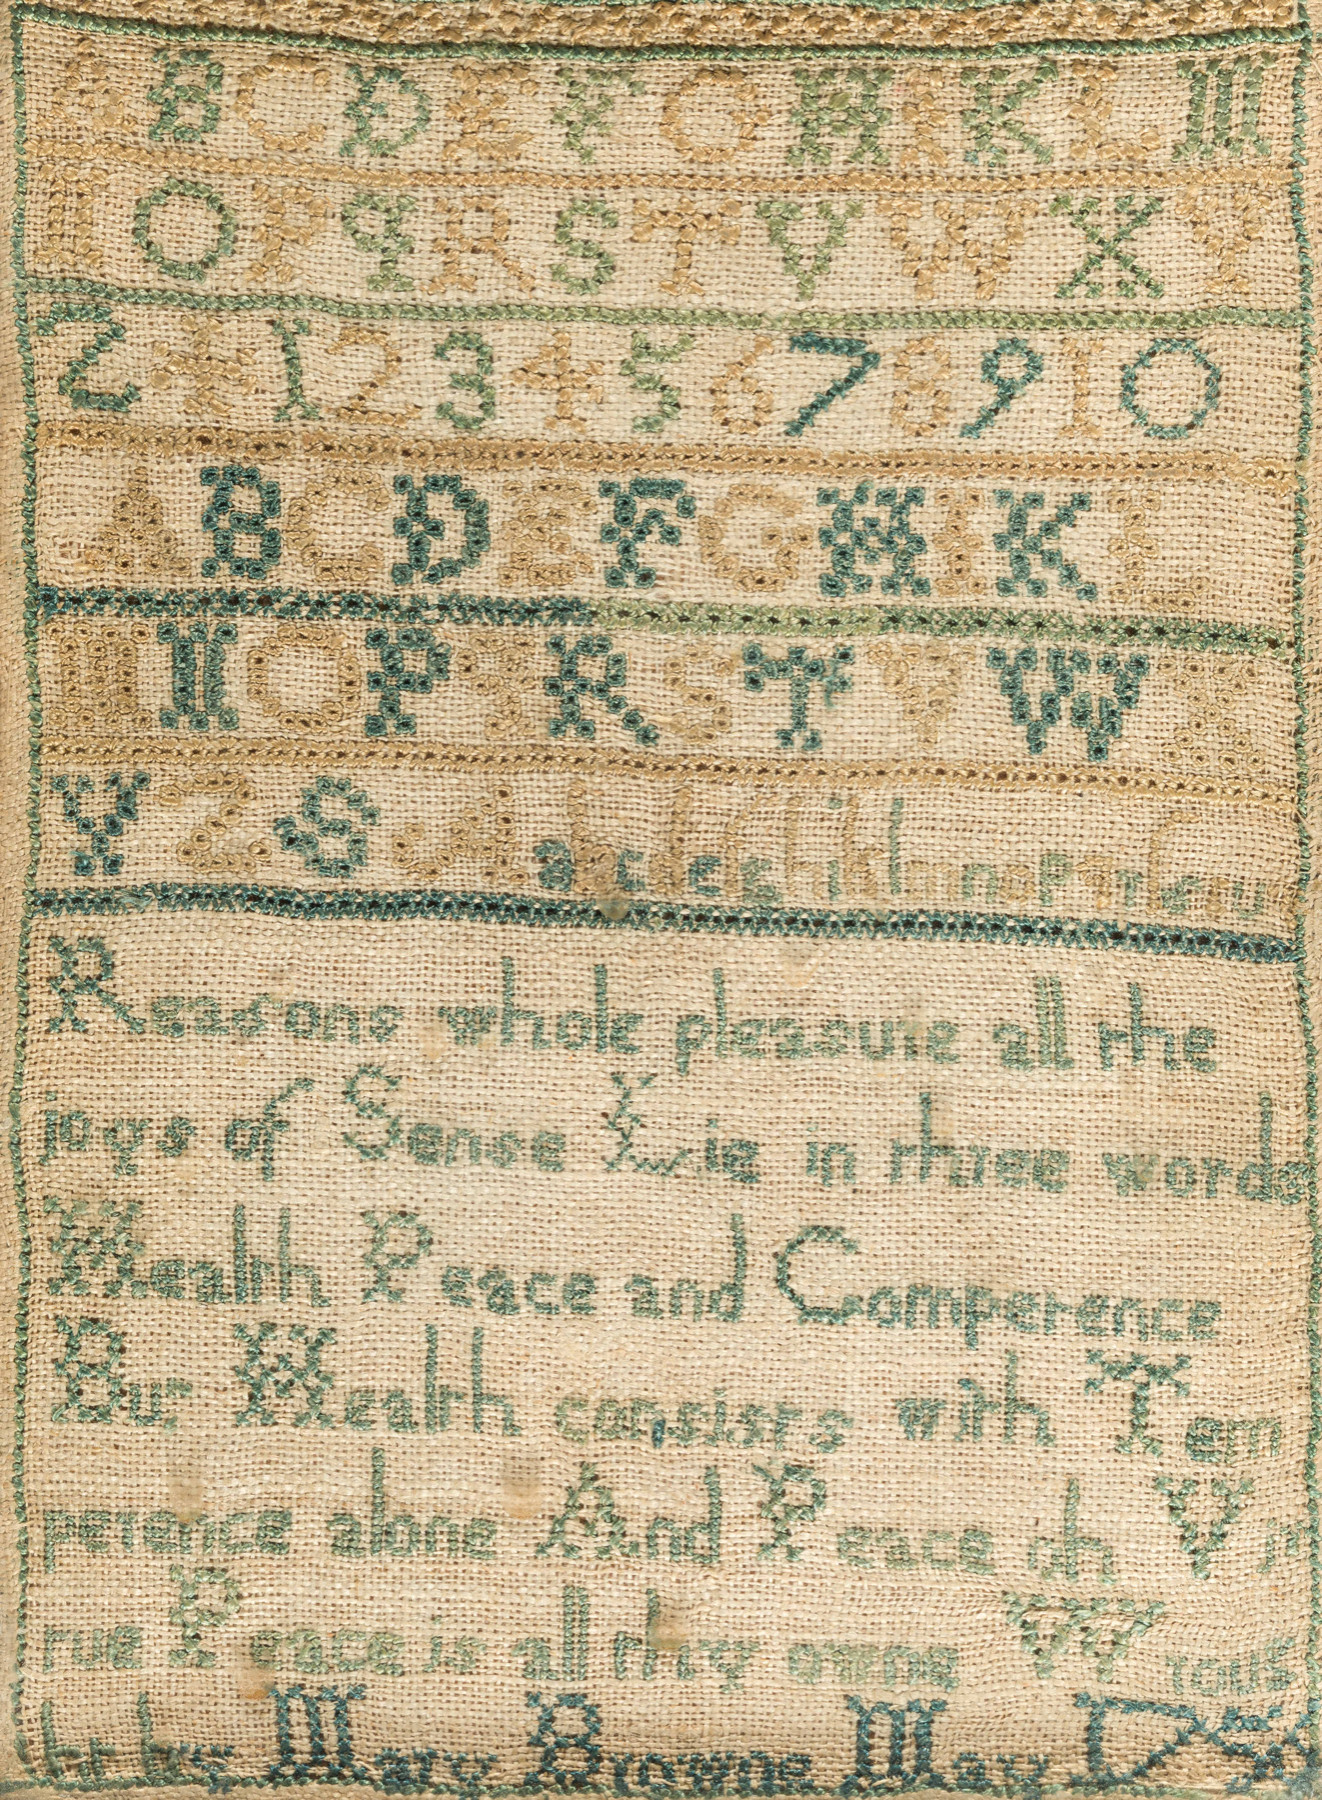 A B C D E F G H I K L M
N O P q R S T V W X Y
Z 1 2 3 4 5 6 7 8 9 1 0
A B C D E F G H I K L
M N O P R S T V W X
Y Z S A
Reasons whole pleasure all the
joys of Sense Lie in three words
Health Peace and Competence
But Health consists with Tem
perence alone And Peace oh Vir
tue Peace is all thy owne Wrous
ht by Mary Browne May D